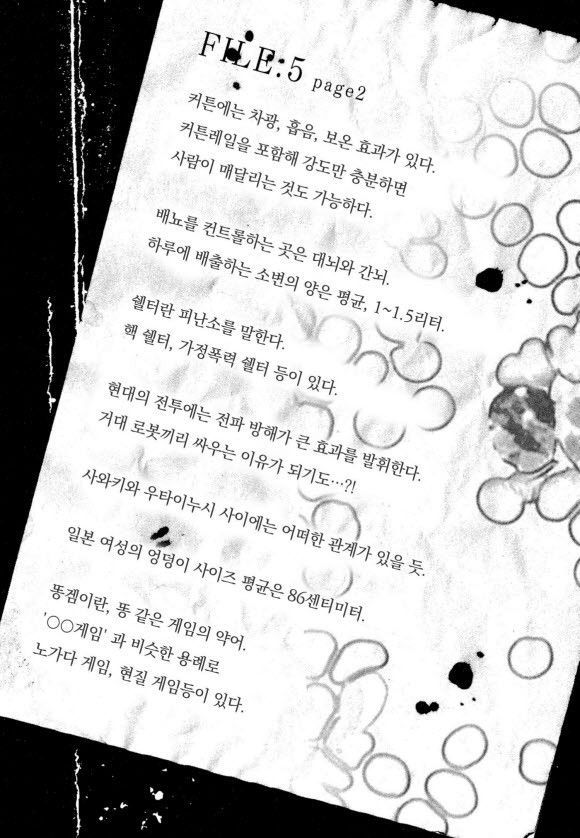 FILE:5 page2
커튼에는 차광, 흡음, 보온 효과가 있다.
커튼레일을 포함해 강도만 충분하면
사람이 매달리는 것도 가능하다.
배뇨를 컨트롤하는 곳은 대뇌와 간뇌.
하루에 배출하는 소변의 양은 평균, 1~1.5리터.
쉘터란 피난소를 말한다.
핵 쉘터, 가정폭력 쉘터 등이 있다.
현대의 전투에는 전파 방해가 큰 효과를 발휘한다.
거대 로봇끼리 싸우는 이유가 되기도…?!
사와키와 우타이누시 사이에는 어떠한 관계가 있을 듯.
일본 여성의 엉덩이 사이즈 평균은 86센티미터.
똥겜이란, 똥 같은 게임의 약어.
'○○게임' 과 비슷한 용례로
노가다 게임, 현질 게임등이 있다.